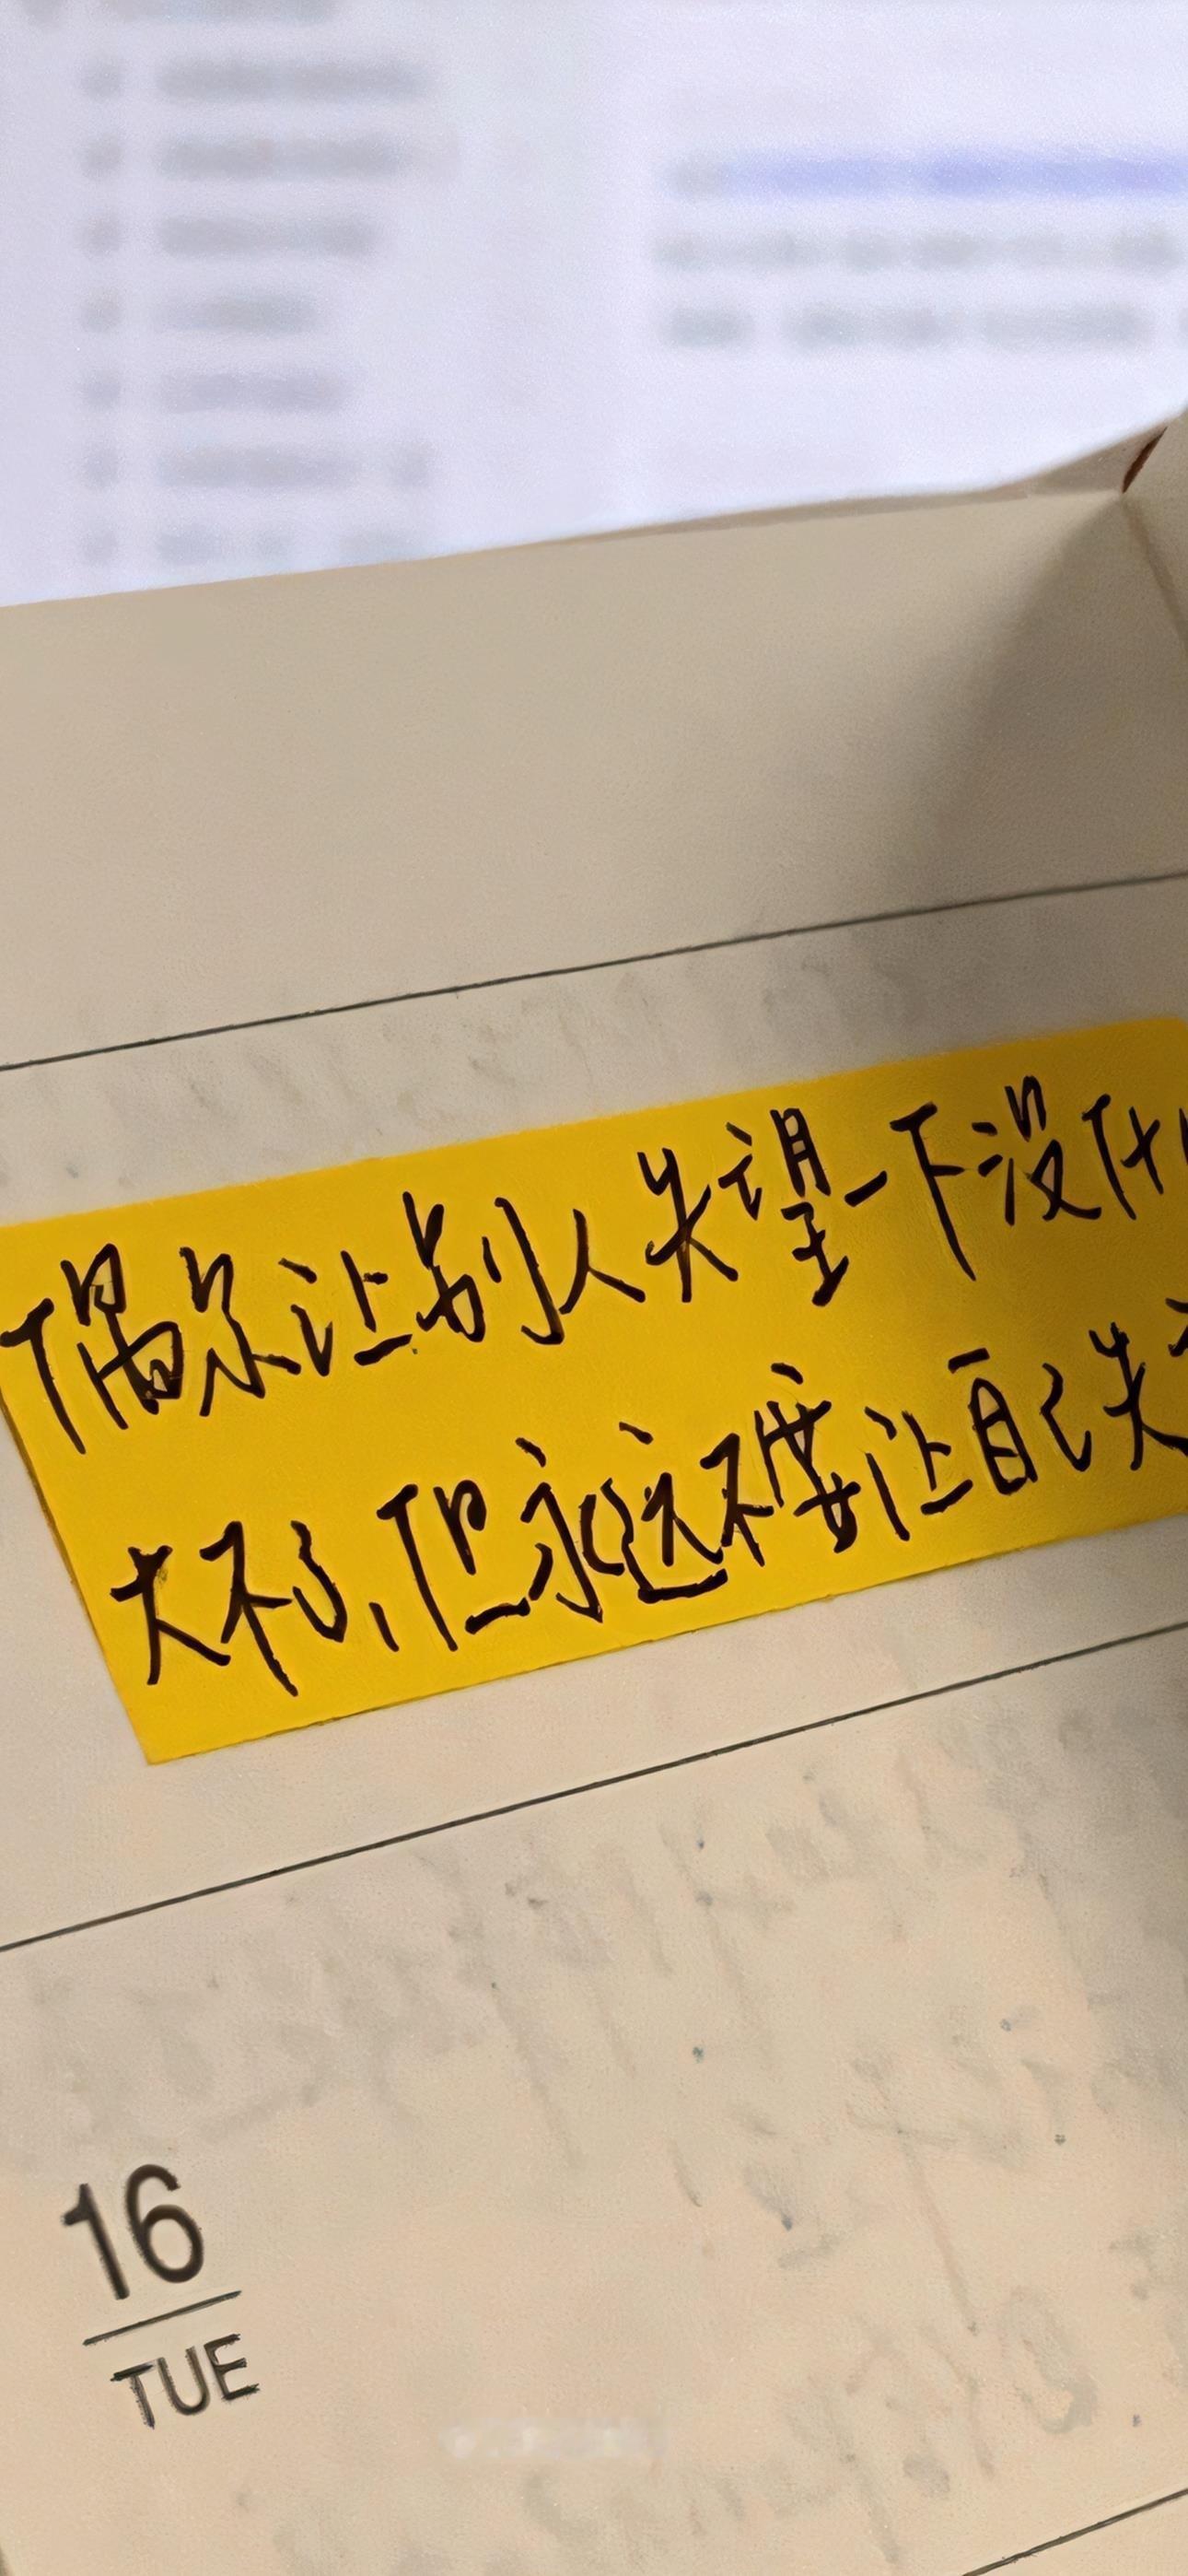 偶尔让别人失望一下没什
大不了,但永远不要让自己失
16
TUE